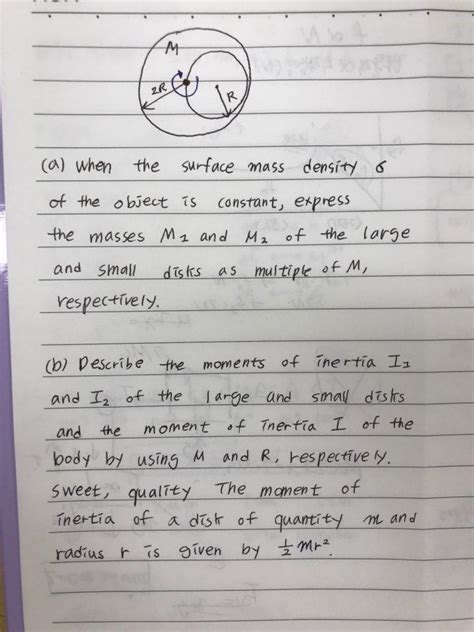 M
2R
R
(a) When the surface mass density σ
of the object is constant, express
the masses M1 and M2 of the large
and small disks as multiple of M,
respectively.
(b) Describe the moments of inertia I1
and I2 of the large and small disks
and the moment of inertia I of the
body by using M and R, respectively.
Sweet, quality The moment of
inertia of a disk of quantity m and
radius r is given by 1/2 mr².